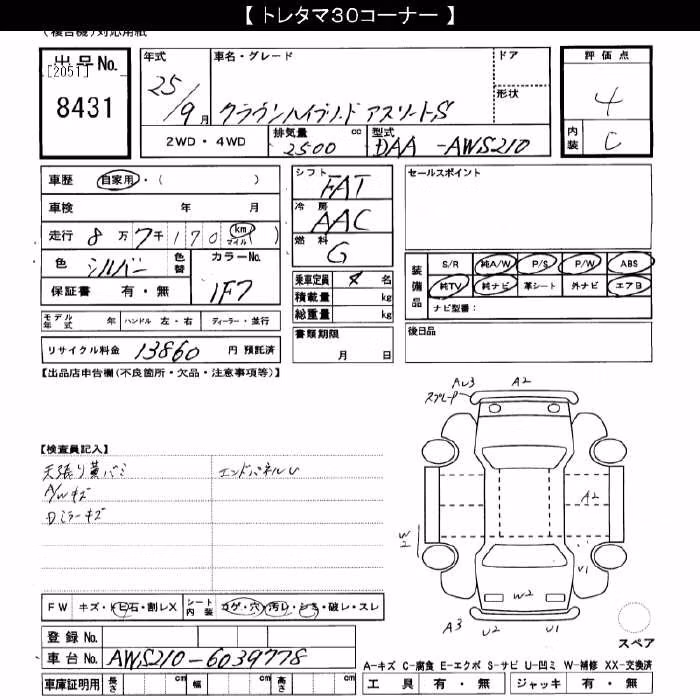 【 トレタマ30コーナー 】
(複合機)対応用紙
出品No.
[2051]
8431
年式
25/9月
車名・グレード
クラウンハイブリッド アスリートS
ドア
形状
評価点
4
内装
C
2WD・4WD
排気量 cc
2500
型式
DAA -AWS210
車歴 自家用・( )
車検 年 月
走行 8万7千170 km マイル ( )
色 シルバー 色替
カラーNo.
1F7
保証書 有・無
シフト
FAT
冷房
AAC
燃料
G
乗車定員 名
積載量 kg
総重量 kg
書類期限
月 日
セールスポイント
装備品
S/R 純A/W P/S P/W ABS
純TV 純ナビ 革シート 外ナビ エアB
ナビ型番:
後日品
モデル年式 年 ハンドル 左・右 ディーラー・並行
リサイクル料金 13860 円 預託済
【出品店申告欄(不良箇所・欠品・注意事項等)】
【検査員記入】
天張り黄バミ
エンドパネルU
A/Wキズ
Dミラーキズ
AU3
A2
スプレーP
A2
W2
U1
W2
A3
U2
U1
スペア
FW キズ・トビ石・割レX
シート内装 コゲ・穴・汚レ・シミ・破レ・スレ
登録No.
車台No. AWS210-6039778
車庫証明用 長さ cm 幅 cm 高さ cm
A-キズ C-腐食 E-エクボ S-サビ U-凹ミ W-補修 XX-交換済
工具 有・無 ジャッキ 有・無